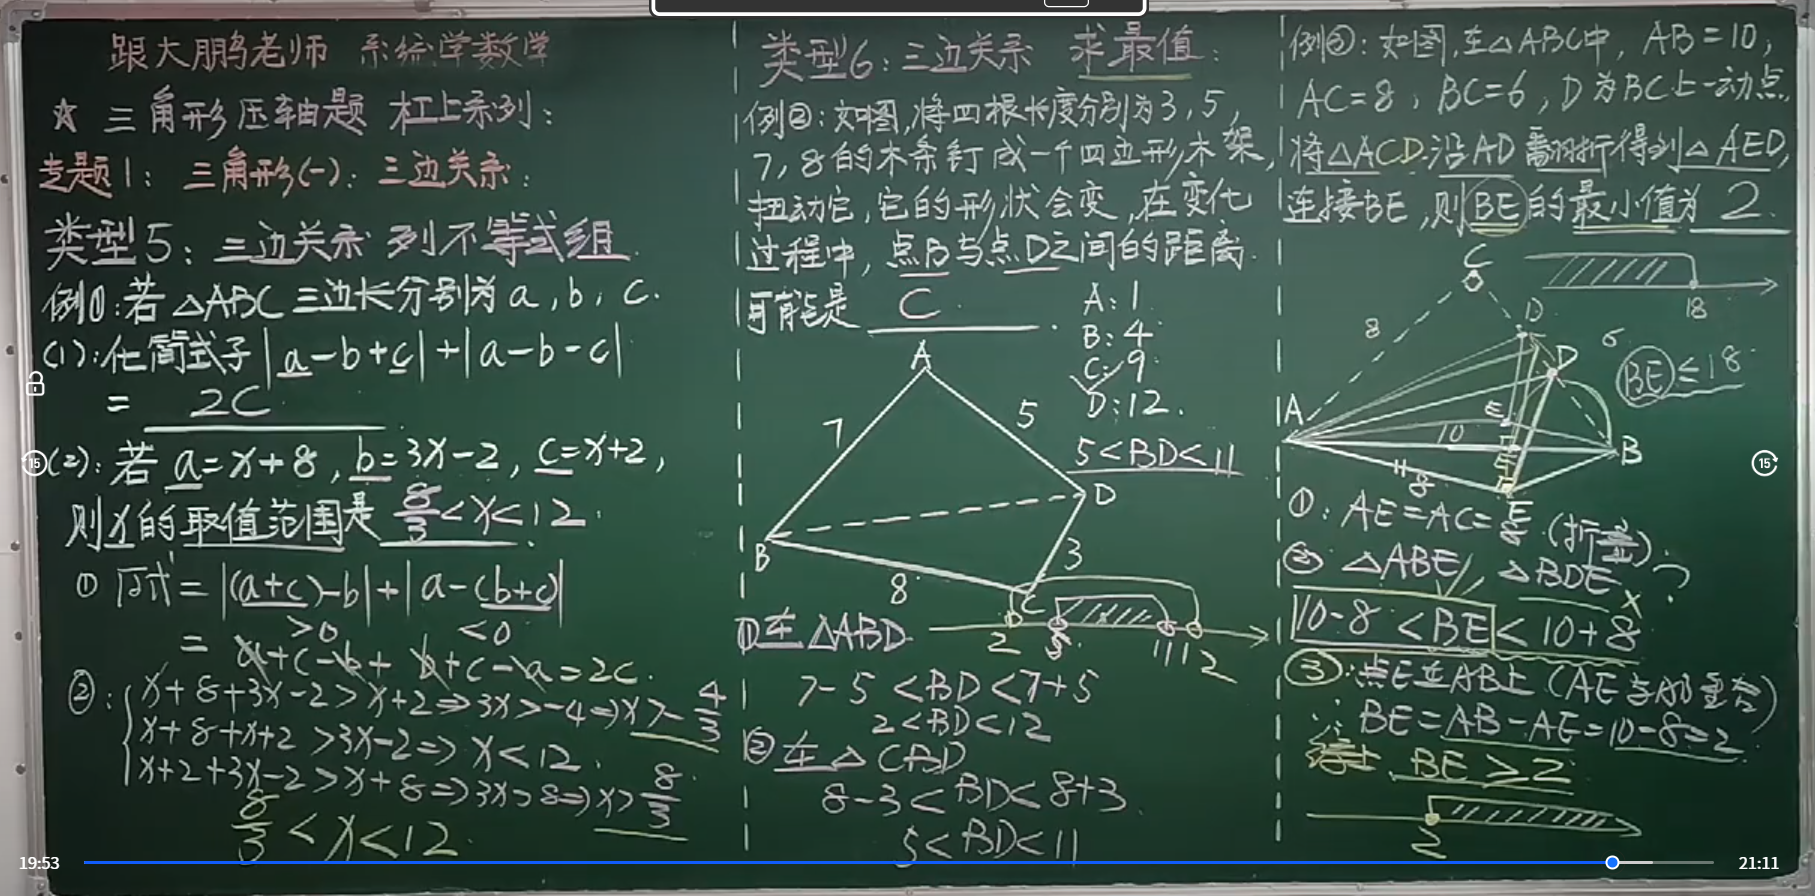 跟大鹏老师 系统学数学
☆ 三角形压轴题 杠上系列:
专题1: 三角形(一): 三边关系:
类型5: 三边关系 列不等式组
例①:若 △ABC 三边长分别为 a, b, c.
(1):化简式子 |a-b+c|+|a-b-c|
= 2C
(2):若 a=x+8, b=3x-2, c=x+2,
则x的取值范围是 8/3<x<12.
① 原式=|(a+c)-b|+|a-(b+c)|
>0 <0
= a+c-b+b+c-a=2c.
②: x+8+3x-2>x+2⇒3x>-4⇒x>-4/3
x+8+x+2>3x-2⇒x<12.
x+2+3x-2>x+8⇒3x>8⇒x>8/3
8/3<x<12.
类型6: 三边关系 求最值:
例②:如图,将四根长度分别为3,5,
7,8的木条钉成一个四边形木架,
扭动它,它的形状会变,在变化
过程中,点B与点D之间的距离
可能是 C .
A:1
B:4
C:9
D:12.
A
7
5
5<BD<11
D
B
3
8
C
2 5 11 12
①在△ABD
7-5<BD<7+5
2<BD<12
②在△CBD
8-3<BD<8+3
5<BD<11
例③:如图,在△ABC中, AB=10,
AC=8, BC=6, D为BC上一动点,
将△ACD沿AD翻折得到△AED,
连接BE,则BE的最小值为 2.
C
18
D
8
6
D
BE≤18
A
E
10
B
E
8
E
①: AE=AC=8 (折叠)
② △ABE △BDE ?
10-8<BE<10+8
③:点E在AB上(AE与AB重合)
∴ BE=AB-AE=10-8=2
BE≥2
2
19:53
21:11
15
15